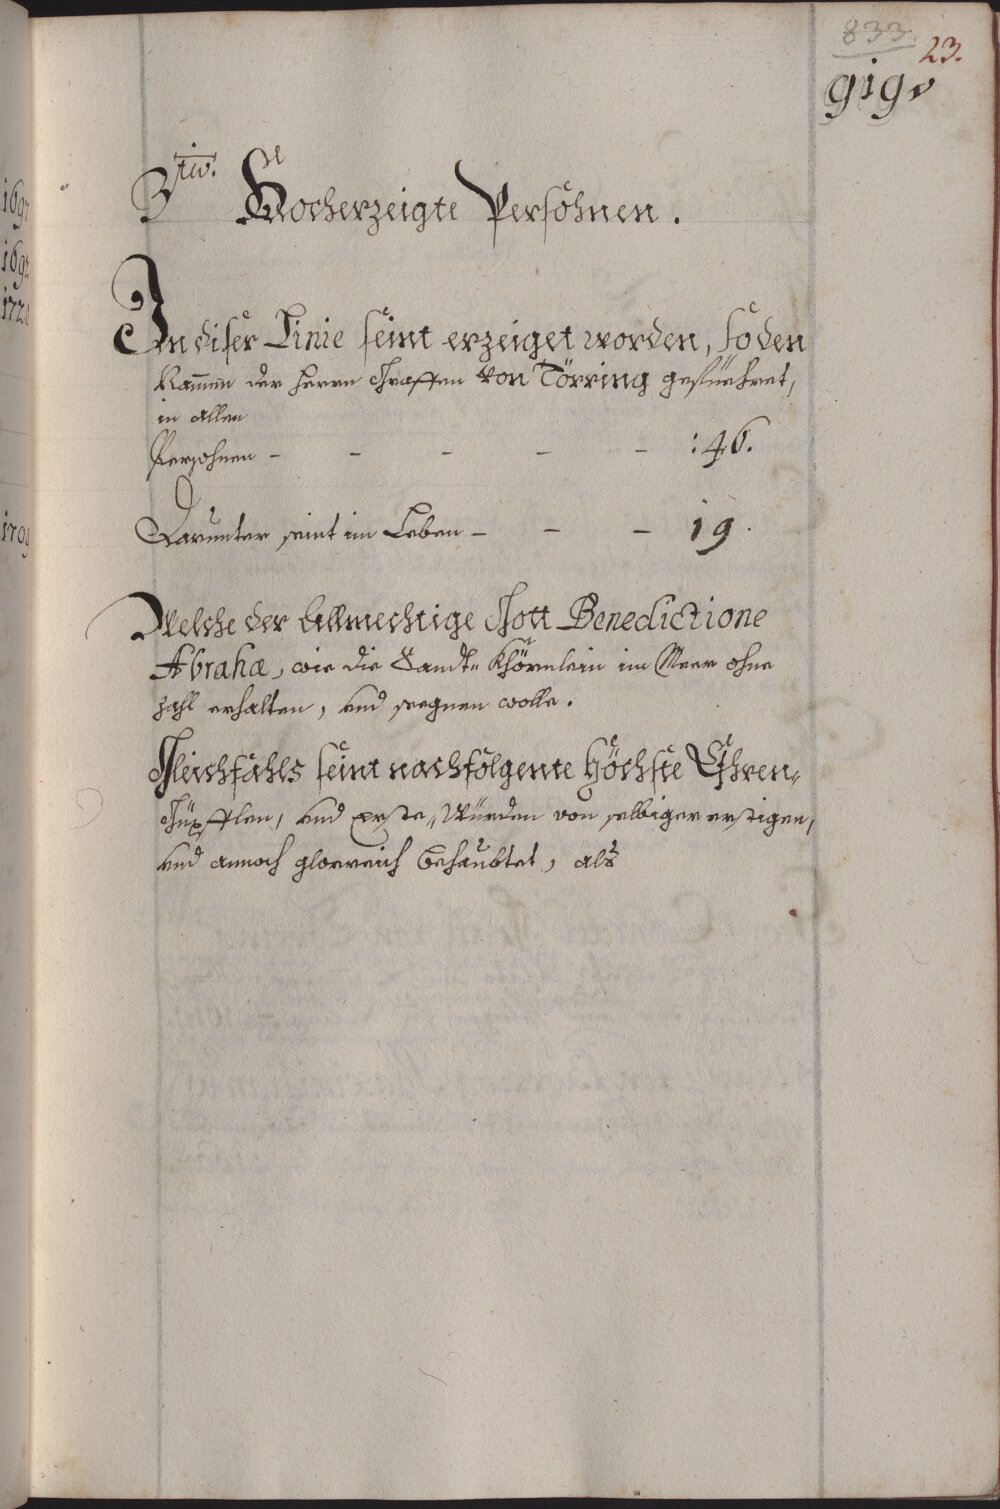 833.
23.
919
3tio. Hocherzeigte Persohnen.
In diser Linie seint erzeiget worden, so den
Nammen der Herrn Graffen von Törring gefüehret,
in allen
Persohnen – – – – – :46.
Darunter seint im Leben – – – 19.
Welche der Allmechtige Gott Benedictione
Abrahæ, wie die Sandt- Khörnlein im Meer ohne
zahl erhalten, und seegnen wolle.
Gleichfahls seint nachfolgente höchste Ehren-
Güpfflen, und Erste, Würden von selbiger erstigen,
und annoch glorreich behaubtet, als
1697
1697
1709